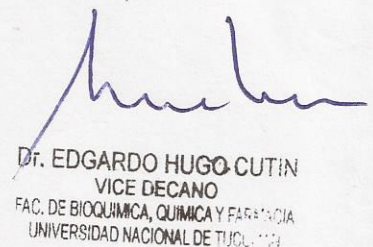 Dr. EDGARDO HUGO CUTIN
VICE DECANO
FAC. DE BIOQUIMICA, QUIMICA Y FARMACIA
UNIVERSIDAD NACIONAL DE